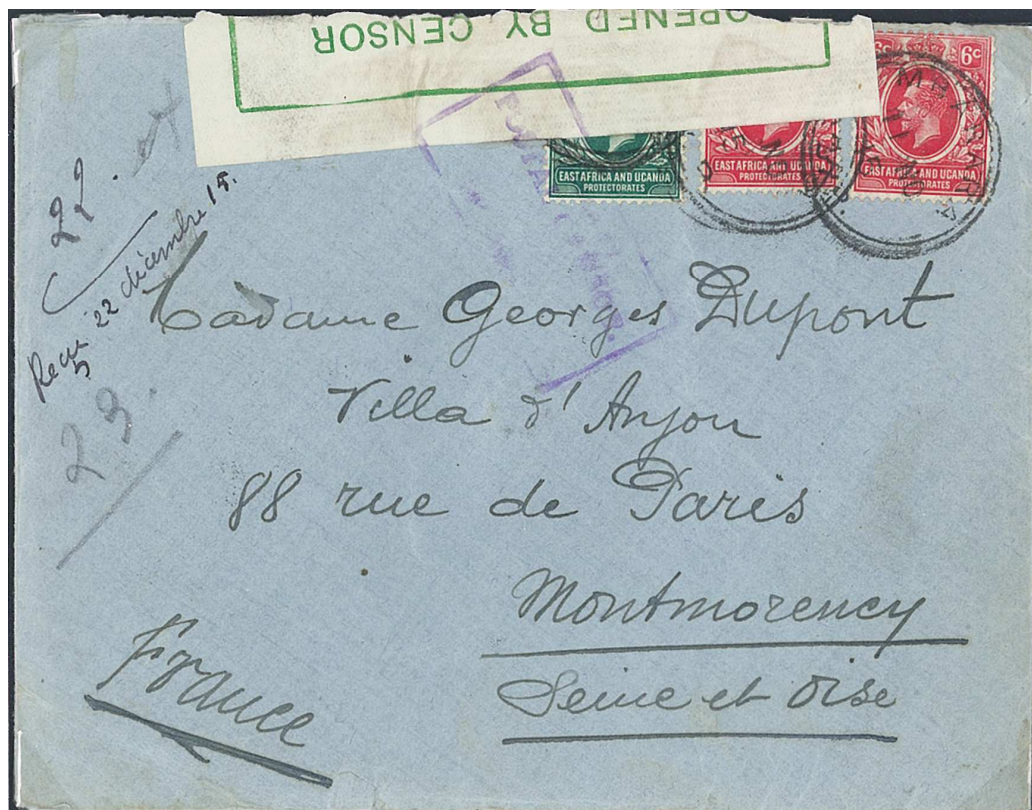 OPENED BY CENSOR
6c 6c
EAST AFRICA AND UGANDA
PROTECTORATES
EAST AFRICA AND UGANDA
PROTECTORATES
EAST AFRICA AND UGANDA
PROTECTORATES
22.
Reçu 22 décembre 15.
23.
Madame Georges Dupont
Villa d'Anjou
88 rue de Paris
Montmorency
Seine et Oise
France